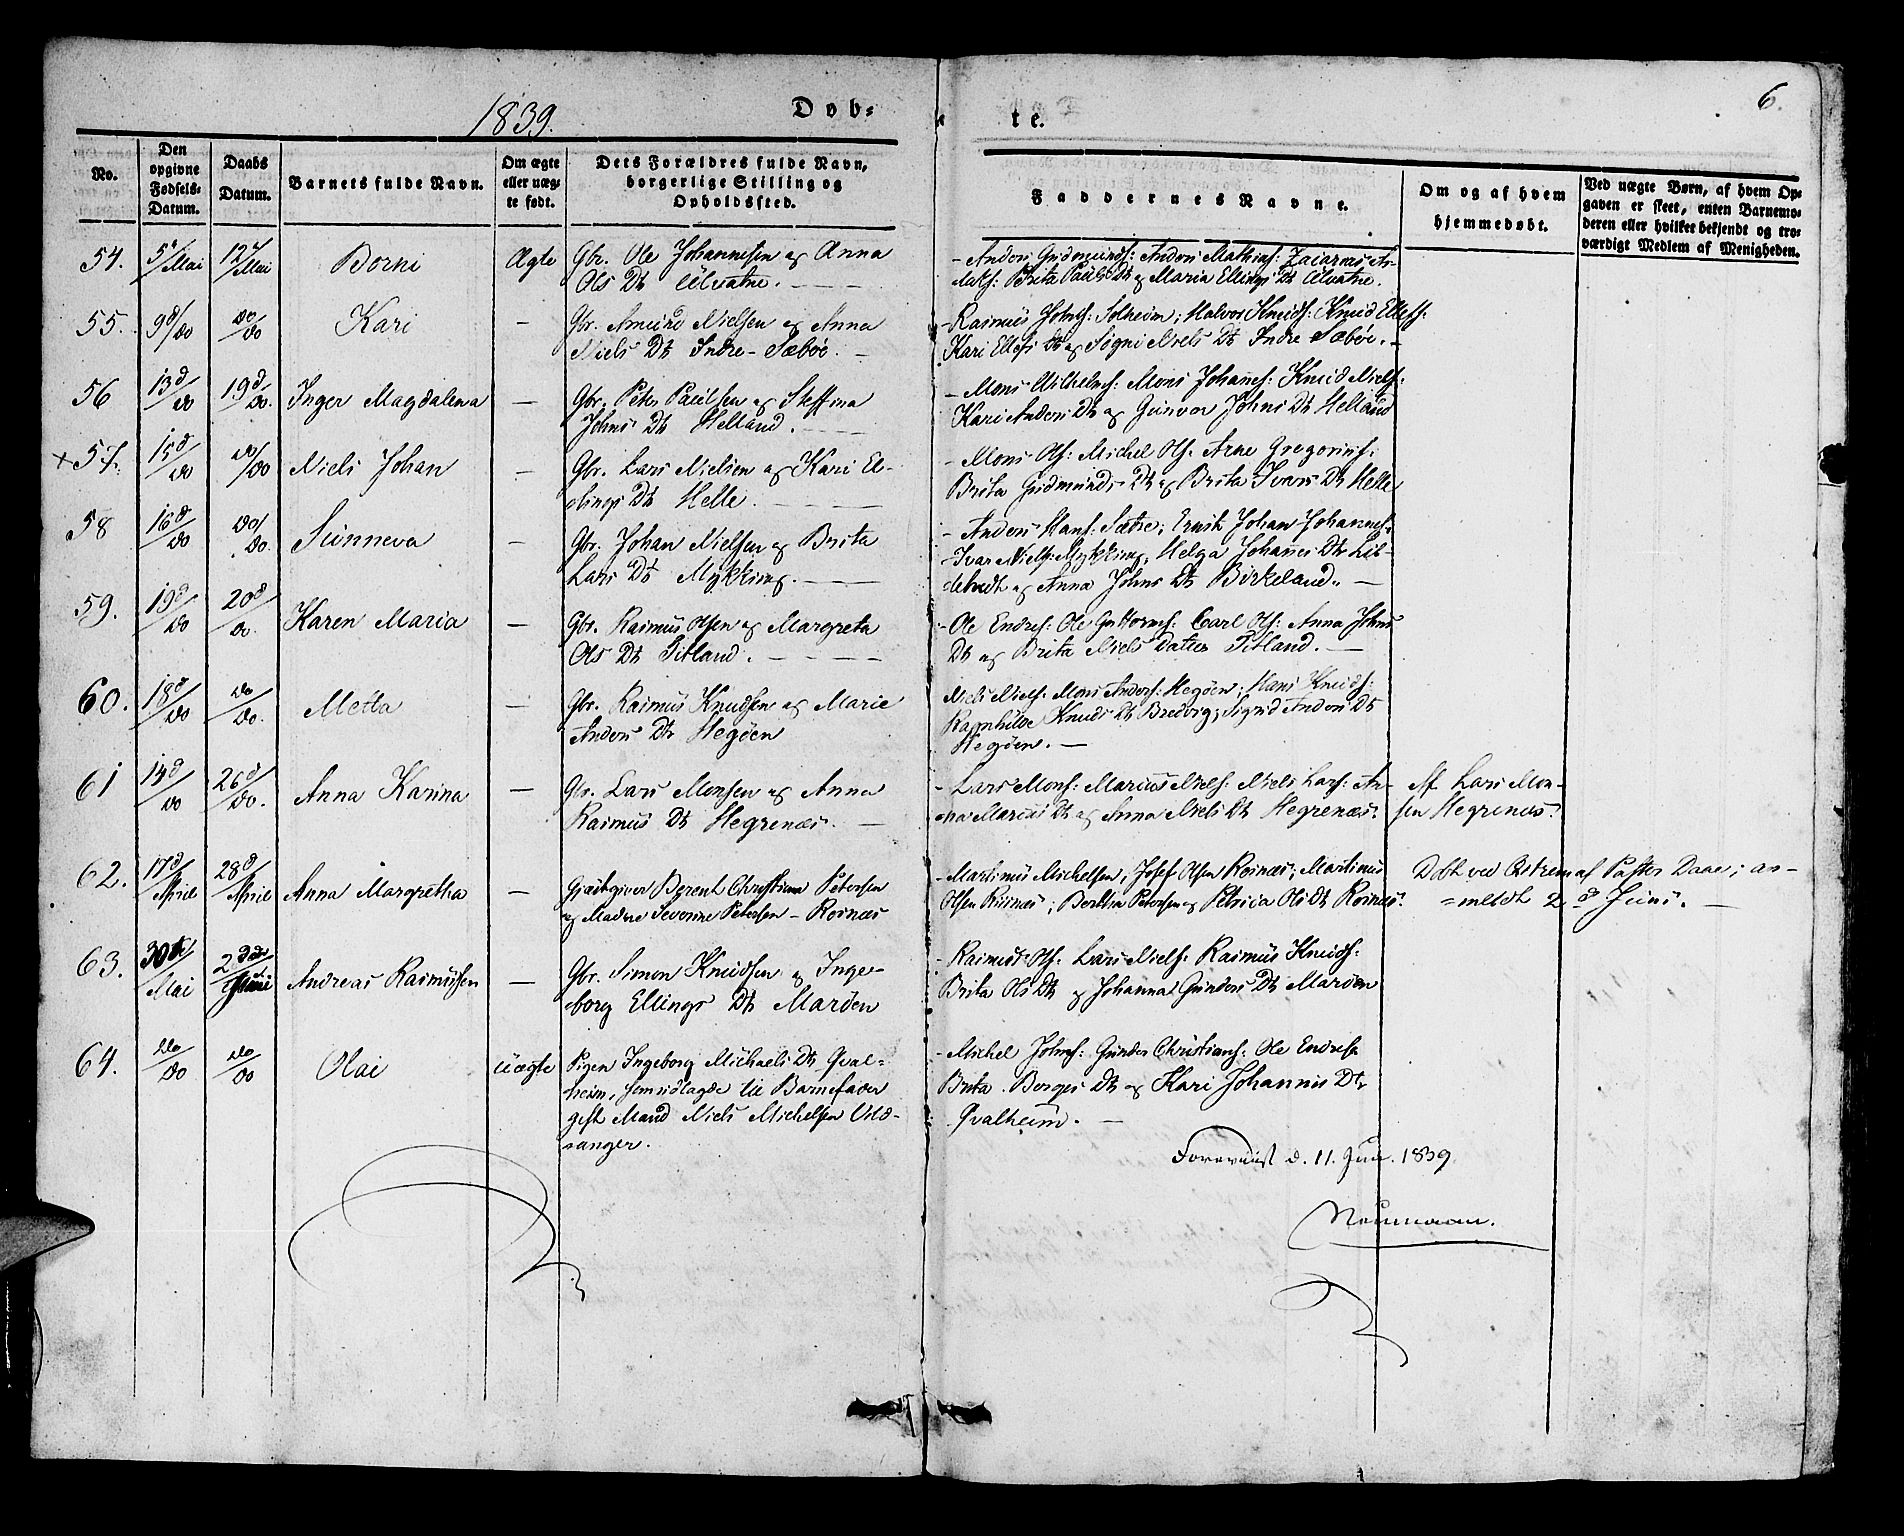 1839.
Døb-
te.
6.
No.
Den
opgivne
Fødsels-
Datum.
Daabs
Datum.
Barnets fulde Navn.
Om ægte
eller uæg-
te født.
Dets Forældres fulde Navn,
borgerlige Stilling og
Opholdssted.
Faddernes Navne.
Om og af hvem
hjemmedøbt.
Ved uægte Børn, af hvem Op-
gaven er skeet, enten Barnemo-
deren eller hvilket bekjendt og tro-
værdigt Medlem af Menigheden.
54. 5/Mai 12/Mai Borni Ægte Gbr. Ole Johannesen og Anna
Ols Dt Ulvatne.
- Anders Gudmunds: Anders Mathias:
Brita Pauls Dt og Maria Ellings Dt Ulvatne.
55. 9d/do do/do Kari — Gbr. Amund Nielsen og Anna
Niels Dt Indre-Sæbøe. —
- Rasmus Johns: Solheim; Halvor Knuds: Knud Ellefs:
Kari Ellefs Dt og Søgni Niels Dt Indre Sæbøe. -
56 13d/do 19d/do. Inger Magdalena — Gbr. Peter Paulsen og Steffina
Johns Dt Helland.
- Mons Wilhelms: Mons Johanes: Knud Niels:
Kari Anders Dt og Gunvor Johns Dt Helland
+57. 15d/do do/do Niels Johan — Gbr. Lars Nielsen og Kari El-
lings Dt Helle.
- Mons Ols: Michel Ols: Arne Gregorius:
Brita Gudmunds Dt og Brita Ivars Dt Helle
58 16d/do do/do. Sunneva — Gbr. Johan Nielsen og Brita
Lars Dt Mykking.
- Anders Hans: Sætre; Ernst Johan Johannes:
- Ivar Niels: Mykking; Helga Johannes Dt Lil-
og Anna Johns Dt Birkeland. —
59. 19d/do 20d/do. Karen Maria — Gbr. Rasmus Olsen og Margreta
Ols Dt Titland.
- Ole Endres: Ole Guttorms: Carl Ols: Anna Johns
Dt og Brita Niels Datter Titland. —
60. 18d/do do/do. Metta — Gbr. Rasmus Knudsen og Marie
Anders Dt Hegøen
Niels Niels: Mons Anders: Hegøen; Hans Knuds:
Ragnhilde Knuds Dt Bredvig; Sigrid Anders Dt
Hegøen. —
61 14d/do 26d/do. Anna Karina — Gbr. Lars Monsen og Anna
Rasmus Dt Hegrenæs. —
- Lars Mons: Marius Niels: Niels Lars: An-
na Marius Dt og Anna Niels Dt Hegrenæs.
Af Lars Mon-
sen Hegrenæs.
62. 17d/April 28d/April Anna Margretha — Gjæstgiver Berent Christian Petersen
og Madme Severine Petersen - Rosnæs
- Martinus Michelsen; Josef Olsen Rosnæs; Martinus
Olsen Rosnæs; Berthe Petersen og Petricia Ols Dt Rosnæs.
Døbt ved af Pastor Daae; an-
=meldt 2d Juni. —
63. 30te/Mai 2den/Juni Andreas Rasmussen — Gbr. Simon Knudsen og Inge-
borg Ellings Dt Marøen
- Rasmus Ols: Lars Niels: Rasmus Knuds:
Brita Ols Dt og Johanna Gunders Dt Marøen
64. do/do do/do Olai Uægte Pigen Ingeborg Michaels Dt Qval-
heim, som udlagde til Barnefader
gift Mand Niels Michelsen Uld-
ranger.
- Michel Johns: Gunder Christians: Ole Endres:
Brita Borges Dt og Kari Johannes Dt
Qvalheim. —
Foreviist d. 11. Juni. 1839
Neumann.